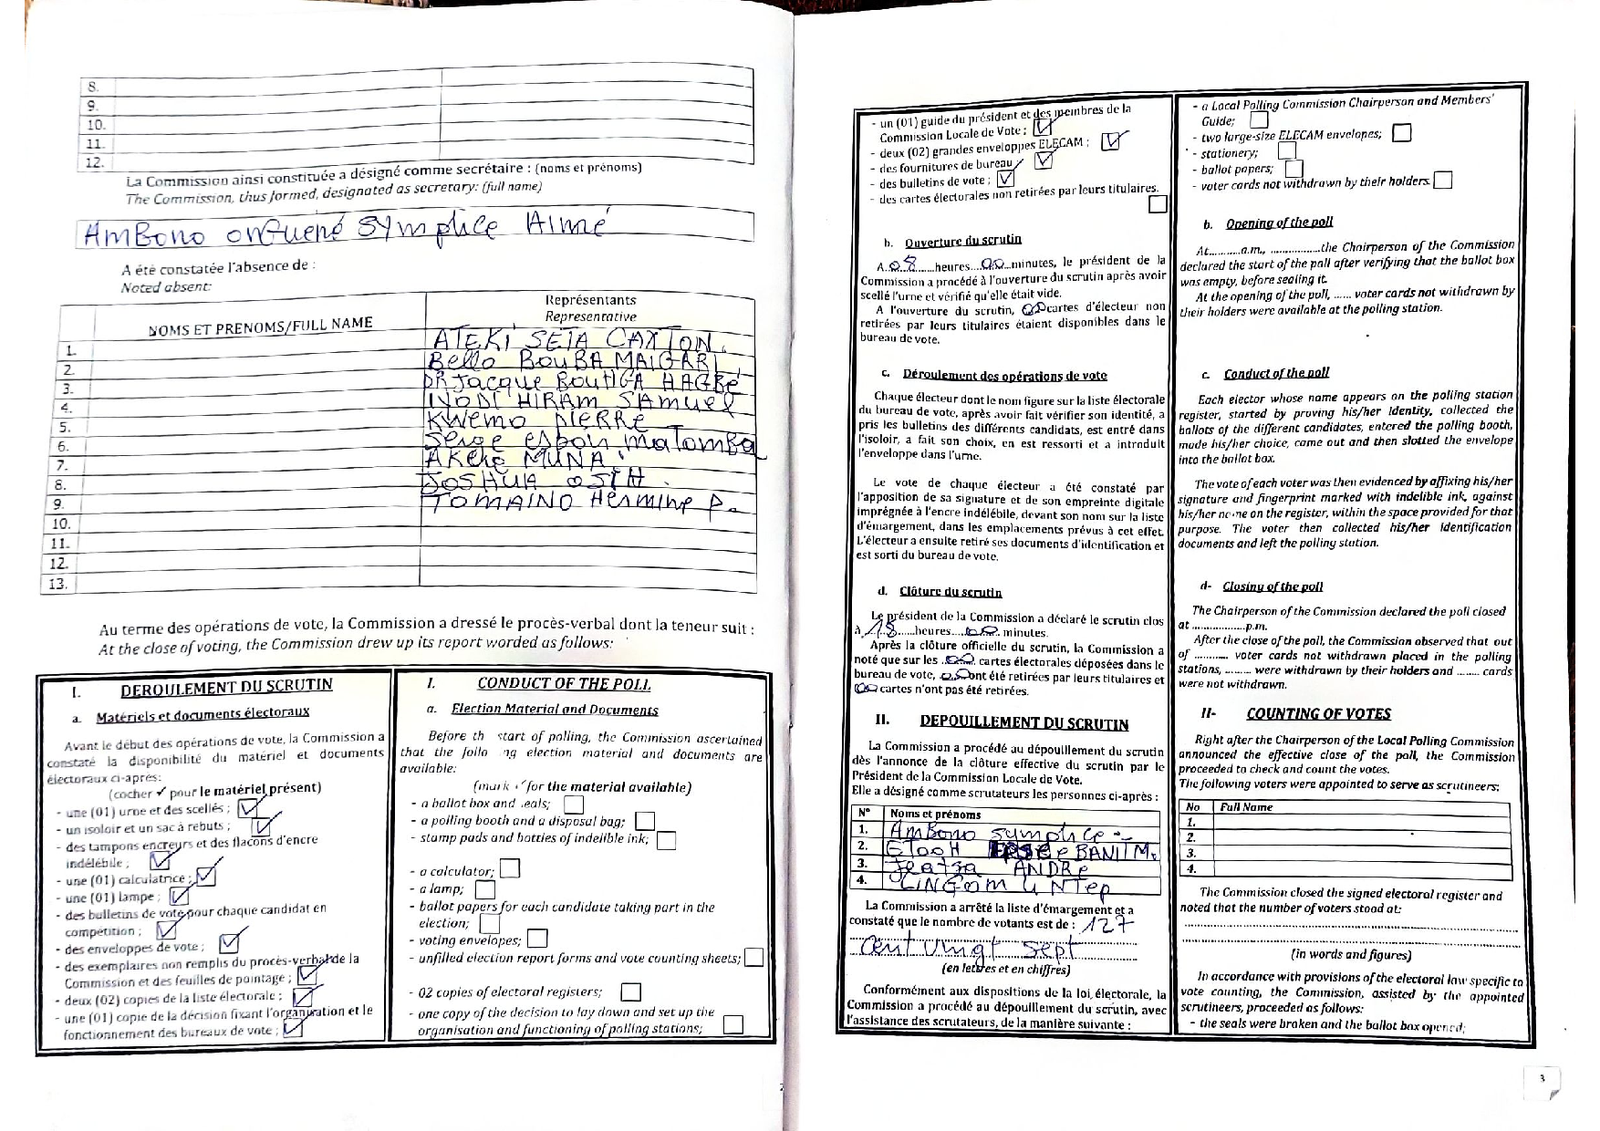 8.
9.
10.
11.
12.
La Commission ainsi constituée a désigné comme secrétaire : (noms et prénoms)
The Commission, thus formed, designated as secretary: (full name)
AmBono onGuené Symplice Aimé
A été constatée l'absence de :
Noted absent:
NOMS ET PRENOMS/FULL NAME
Représentants
Representative
1. ATEKI SETA CAXTON.
2. Bello BouBA MAIGARI
3. DR Jacque BouHGA HAGBé
4. INODI HIRAM SAmuel
5. KWemo PIERRE
6. Serge espoir maTomba
7. AKere MUNA
8. JOSHUA OSIH.
9. TOMAINO Hermine P.
10.
11.
12.
13.
Au terme des opérations de vote, la Commission a dressé le procès-verbal dont la teneur suit :
At the close of voting, the Commission drew up its report worded as follows:
I. DEROULEMENT DU SCRUTIN
a. Matériels et documents électoraux
Avant le début des opérations de vote, la Commission a
constaté la disponibilité du matériel et documents
électoraux ci-après:
(cocher ✓ pour le matériel présent)
- une (01) urne et des scellés ; ✓
- un isoloir et un sac à rebuts ; ✓
- des tampons encreurs et des flacons d'encre
indélébile ; ✓
- une (01) calculatrice ; ✓
- une (01) lampe ; ✓
- des bulletins de vote pour chaque candidat en
compétition ; ✓
- des enveloppes de vote ; ✓
- des exemplaires non remplis du procès-verbal de la
Commission et des feuilles de pointage ; ✓
- deux (02) copies de la liste électorale ; ✓
- une (01) copie de la décision fixant l'organisation et le
fonctionnement des bureaux de vote ; ✓
I. CONDUCT OF THE POLL
a. Election Material and Documents
Before th start of polling, the Commission ascertained
that the follo ng election material and documents are
available:
(mark ✓ for the material available)
- a ballot box and seals;
- a polling booth and a disposal bag;
- stamp pads and bottles of indelible ink;
- a calculator;
- a lamp;
- ballot papers for each candidate taking part in the
election;
- voting envelopes;
- unfilled election report forms and vote counting sheets;
- 02 copies of electoral registers;
- one copy of the decision to lay down and set up the
organisation and functioning of polling stations;
- un (01) guide du président et des membres de la
Commission Locale de Vote ; ✓
- deux (02) grandes enveloppes ELECAM ; ✓
- des fournitures de bureau ✓
- des bulletins de vote ; ✓
- des cartes électorales non retirées par leurs titulaires.
b. Ouverture du scrutin
A 08 heures 00 minutes, le président de la
Commission a procédé à l'ouverture du scrutin après avoir
scellé l'urne et vérifié qu'elle était vide.
A l'ouverture du scrutin, 00 cartes d'électeur non
retirées par leurs titulaires étaient disponibles dans le
bureau de vote.
c. Déroulement des opérations de vote
Chaque électeur dont le nom figure sur la liste électorale
du bureau de vote, après avoir fait vérifier son identité, a
pris les bulletins des différents candidats, est entré dans
l'isoloir, a fait son choix, en est ressorti et a introduit
l'enveloppe dans l'urne.
Le vote de chaque électeur a été constaté par
l'apposition de sa signature et de son empreinte digitale
imprégnée à l'encre indélébile, devant son nom sur la liste
d'émargement, dans les emplacements prévus à cet effet.
L'électeur a ensuite retiré ses documents d'identification et
est sorti du bureau de vote.
d. Clôture du scrutin
Le président de la Commission a déclaré le scrutin clos
à 18 heures 00 minutes.
Après la clôture officielle du scrutin, la Commission a
noté que sur les 00 cartes électorales déposées dans le
bureau de vote, 00 ont été retirées par leurs titulaires et
00 cartes n'ont pas été retirées.
II. DEPOUILLEMENT DU SCRUTIN
La Commission a procédé au dépouillement du scrutin
dès l'annonce de la clôture effective du scrutin par le
Président de la Commission Locale de Vote.
Elle a désigné comme scrutateurs les personnes ci-après :
N° Noms et prénoms
1. AmBono symplice
2. ETooH BANITM.
3. ANDRE
4. LINGom
La Commission a arrêté la liste d'émargement et a
constaté que le nombre de votants est de : 127
cent vingt sept
(en lettres et en chiffres)
Conformément aux dispositions de la loi électorale, la
Commission a procédé au dépouillement du scrutin, avec
l'assistance des scrutateurs, de la manière suivante :
- a Local Polling Commission Chairperson and Members'
Guide;
- two large-size ELECAM envelopes;
- stationery;
- ballot papers;
- voter cards not withdrawn by their holders.
b. Opening of the poll
At..........a.m., ...............the Chairperson of the Commission
declared the start of the poll after verifying that the ballot box
was empty, before sealing it.
At the opening of the poll, ...... voter cards not withdrawn by
their holders were available at the polling station.
c. Conduct of the poll
Each elector whose name appears on the polling station
register, started by proving his/her identity, collected the
ballots of the different candidates, entered the polling booth,
made his/her choice, came out and then slotted the envelope
into the ballot box.
The vote of each voter was then evidenced by affixing his/her
signature and fingerprint marked with indelible ink, against
his/her name on the register, within the space provided for that
purpose. The voter then collected his/her identification
documents and left the polling station.
d- Closing of the poll
The Chairperson of the Commission declared the poll closed
at ..................p.m.
After the close of the poll, the Commission observed that out
of ........... voter cards not withdrawn placed in the polling
stations, ........ were withdrawn by their holders and ........ cards
were not withdrawn.
II- COUNTING OF VOTES
Right after the Chairperson of the Local Polling Commission
announced the effective close of the poll, the Commission
proceeded to check and count the votes.
The following voters were appointed to serve as scrutineers:
No Full Name
1.
2.
3.
4.
The Commission closed the signed electoral register and
noted that the number of voters stood at:
(in words and figures)
In accordance with provisions of the electoral law specific to
vote counting, the Commission, assisted by the appointed
scrutineers, proceeded as follows:
- the seals were broken and the ballot box opened;
3